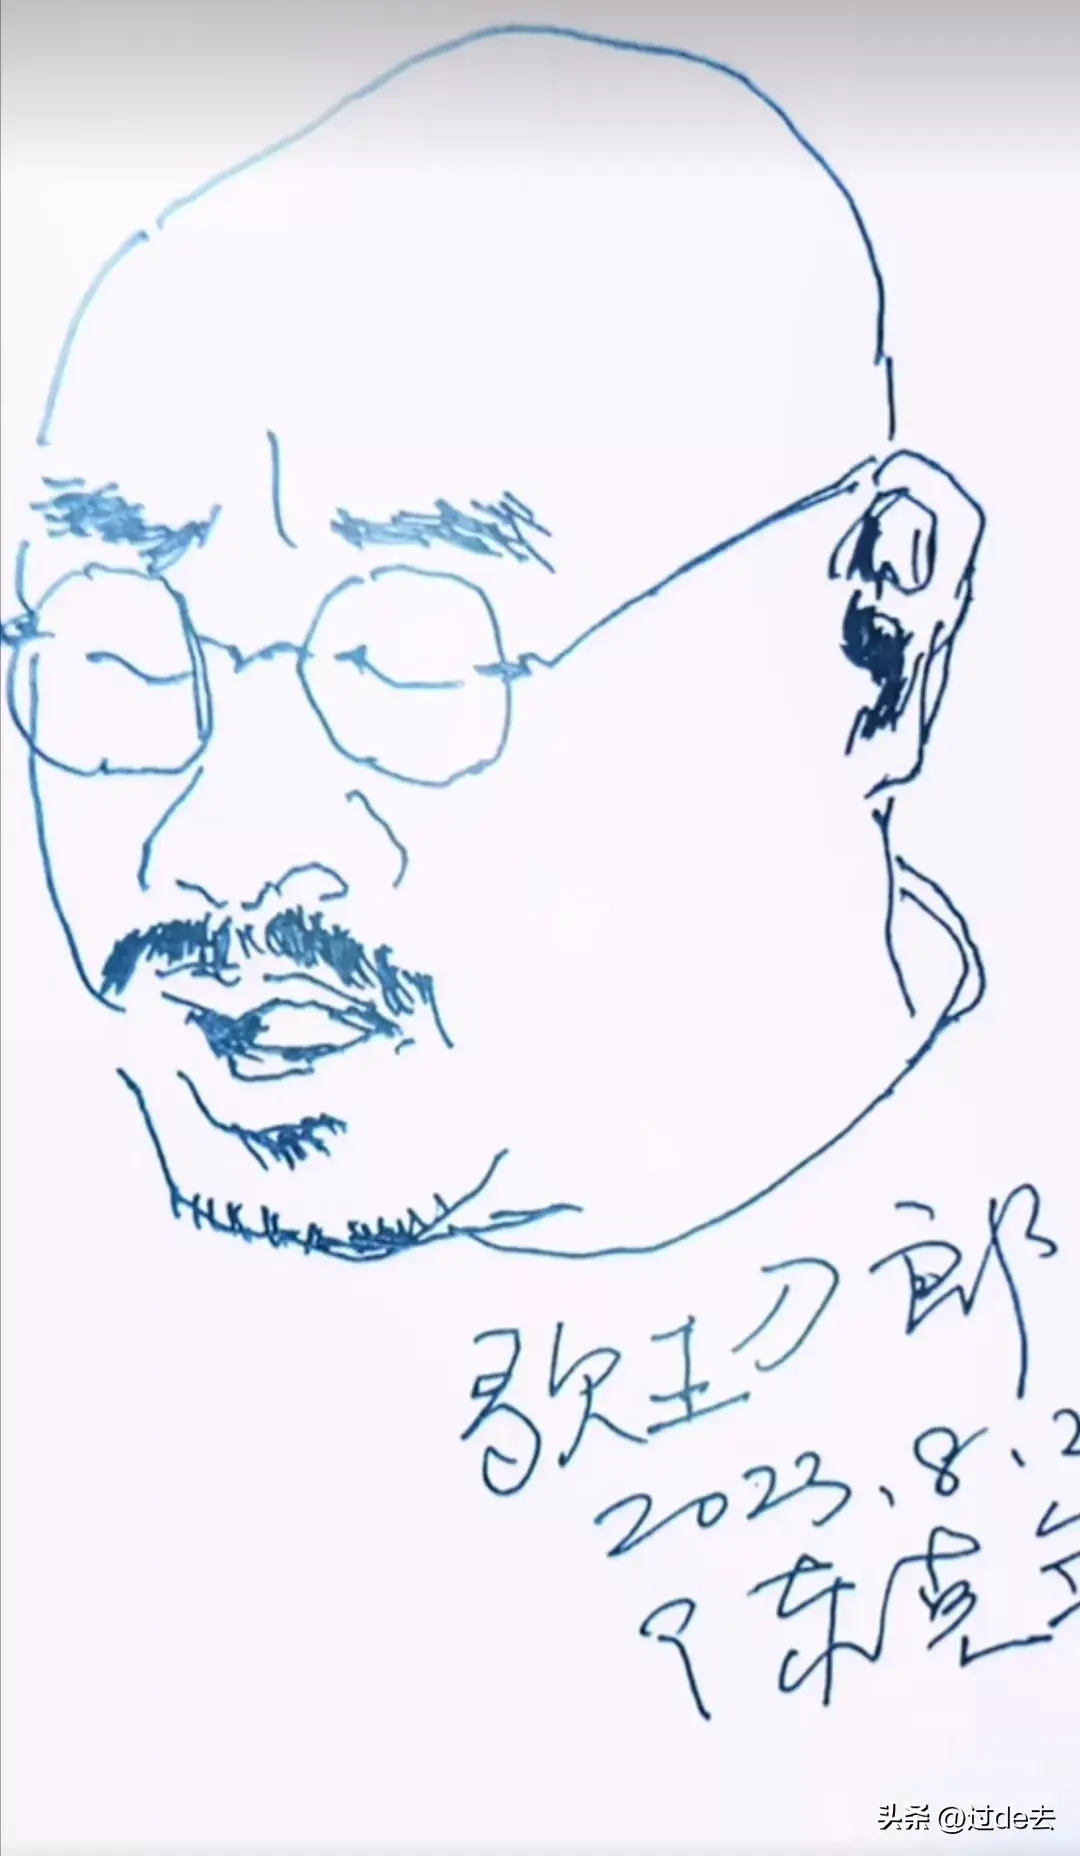 歌王刀郎
2023.8.2
陈克
头条 @过de去